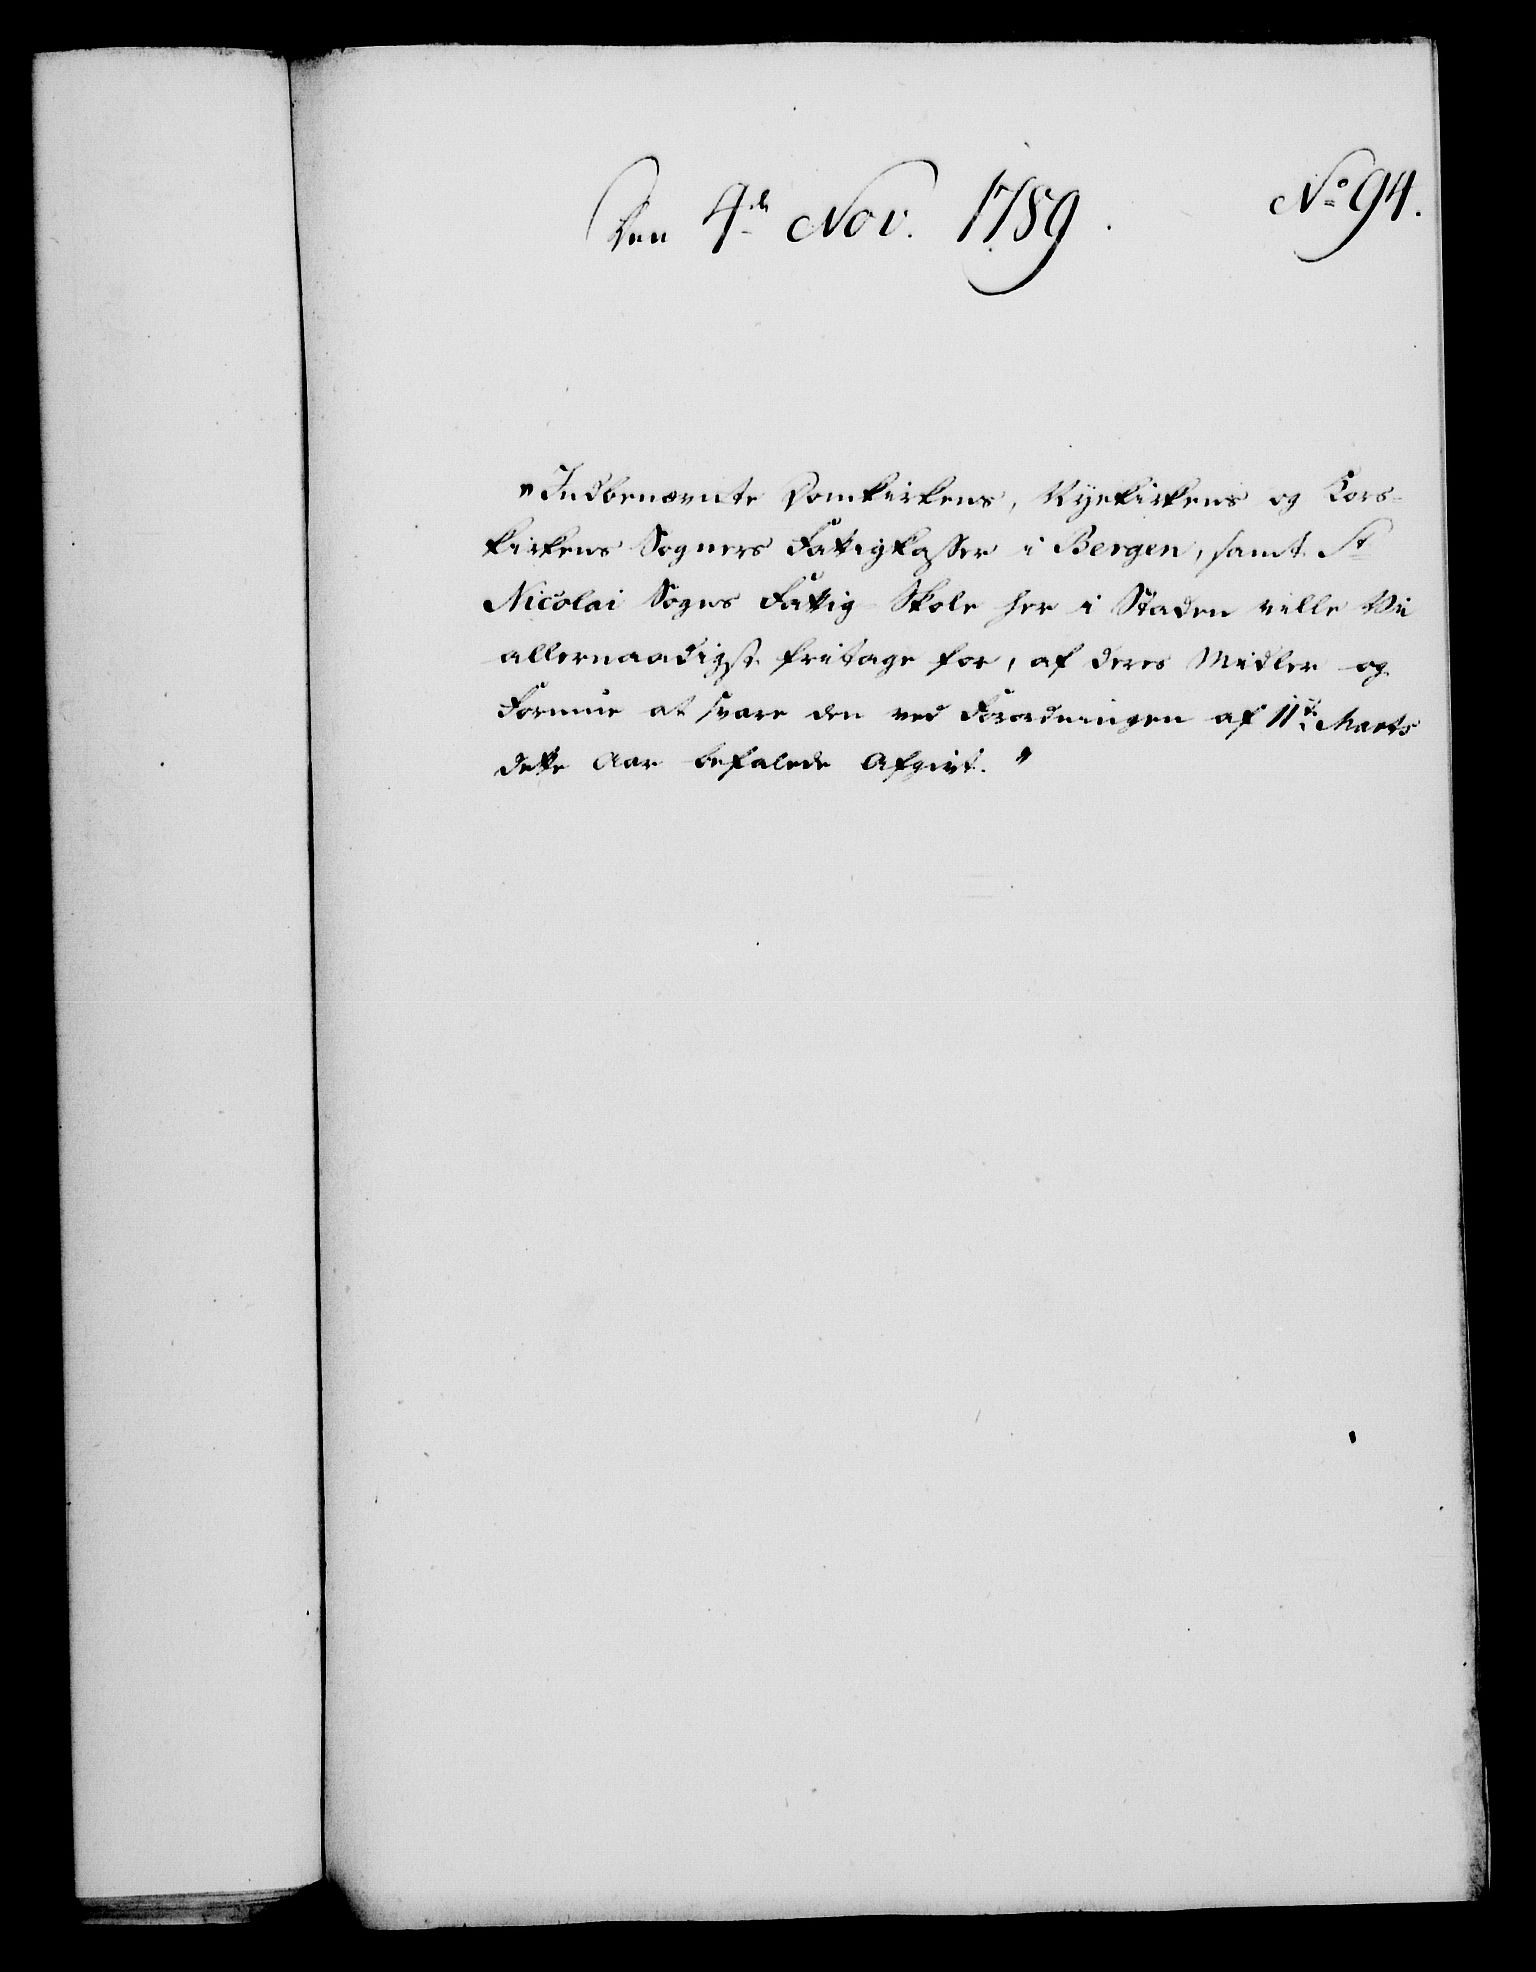 Den 4de Nov. 1789.
No 94.
"Indbenævnte Domkirkens, Nyekirkens og Kors-
kirkens Sogners Fattigkasser i Bergen, samt St
Nicolai Sogns Fattig-Skole her i Staden ville Vi
allernaadigst fritage for, af deres Midler og
Formue at svare den ved Forordningen af 11te Marts
dette Aar befalede Afgivt."